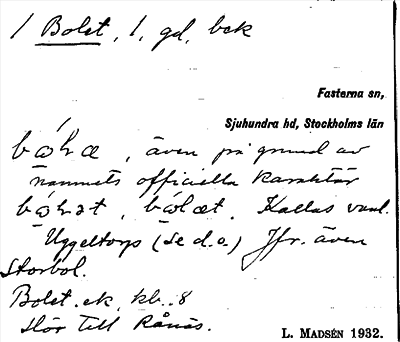 1 Bolet, 1, gd, bek
Fasterna sn,
Sjuhundra hd, Stockholms län
, även på grund av
namnets officiella karaktär
Kallas vanl.
Uggeltorp (se d.o.) Jfr. även
Storbol.
Bolet. ek. kb. 8
Hör till Rånäs.
L. MADSÉN 1932.